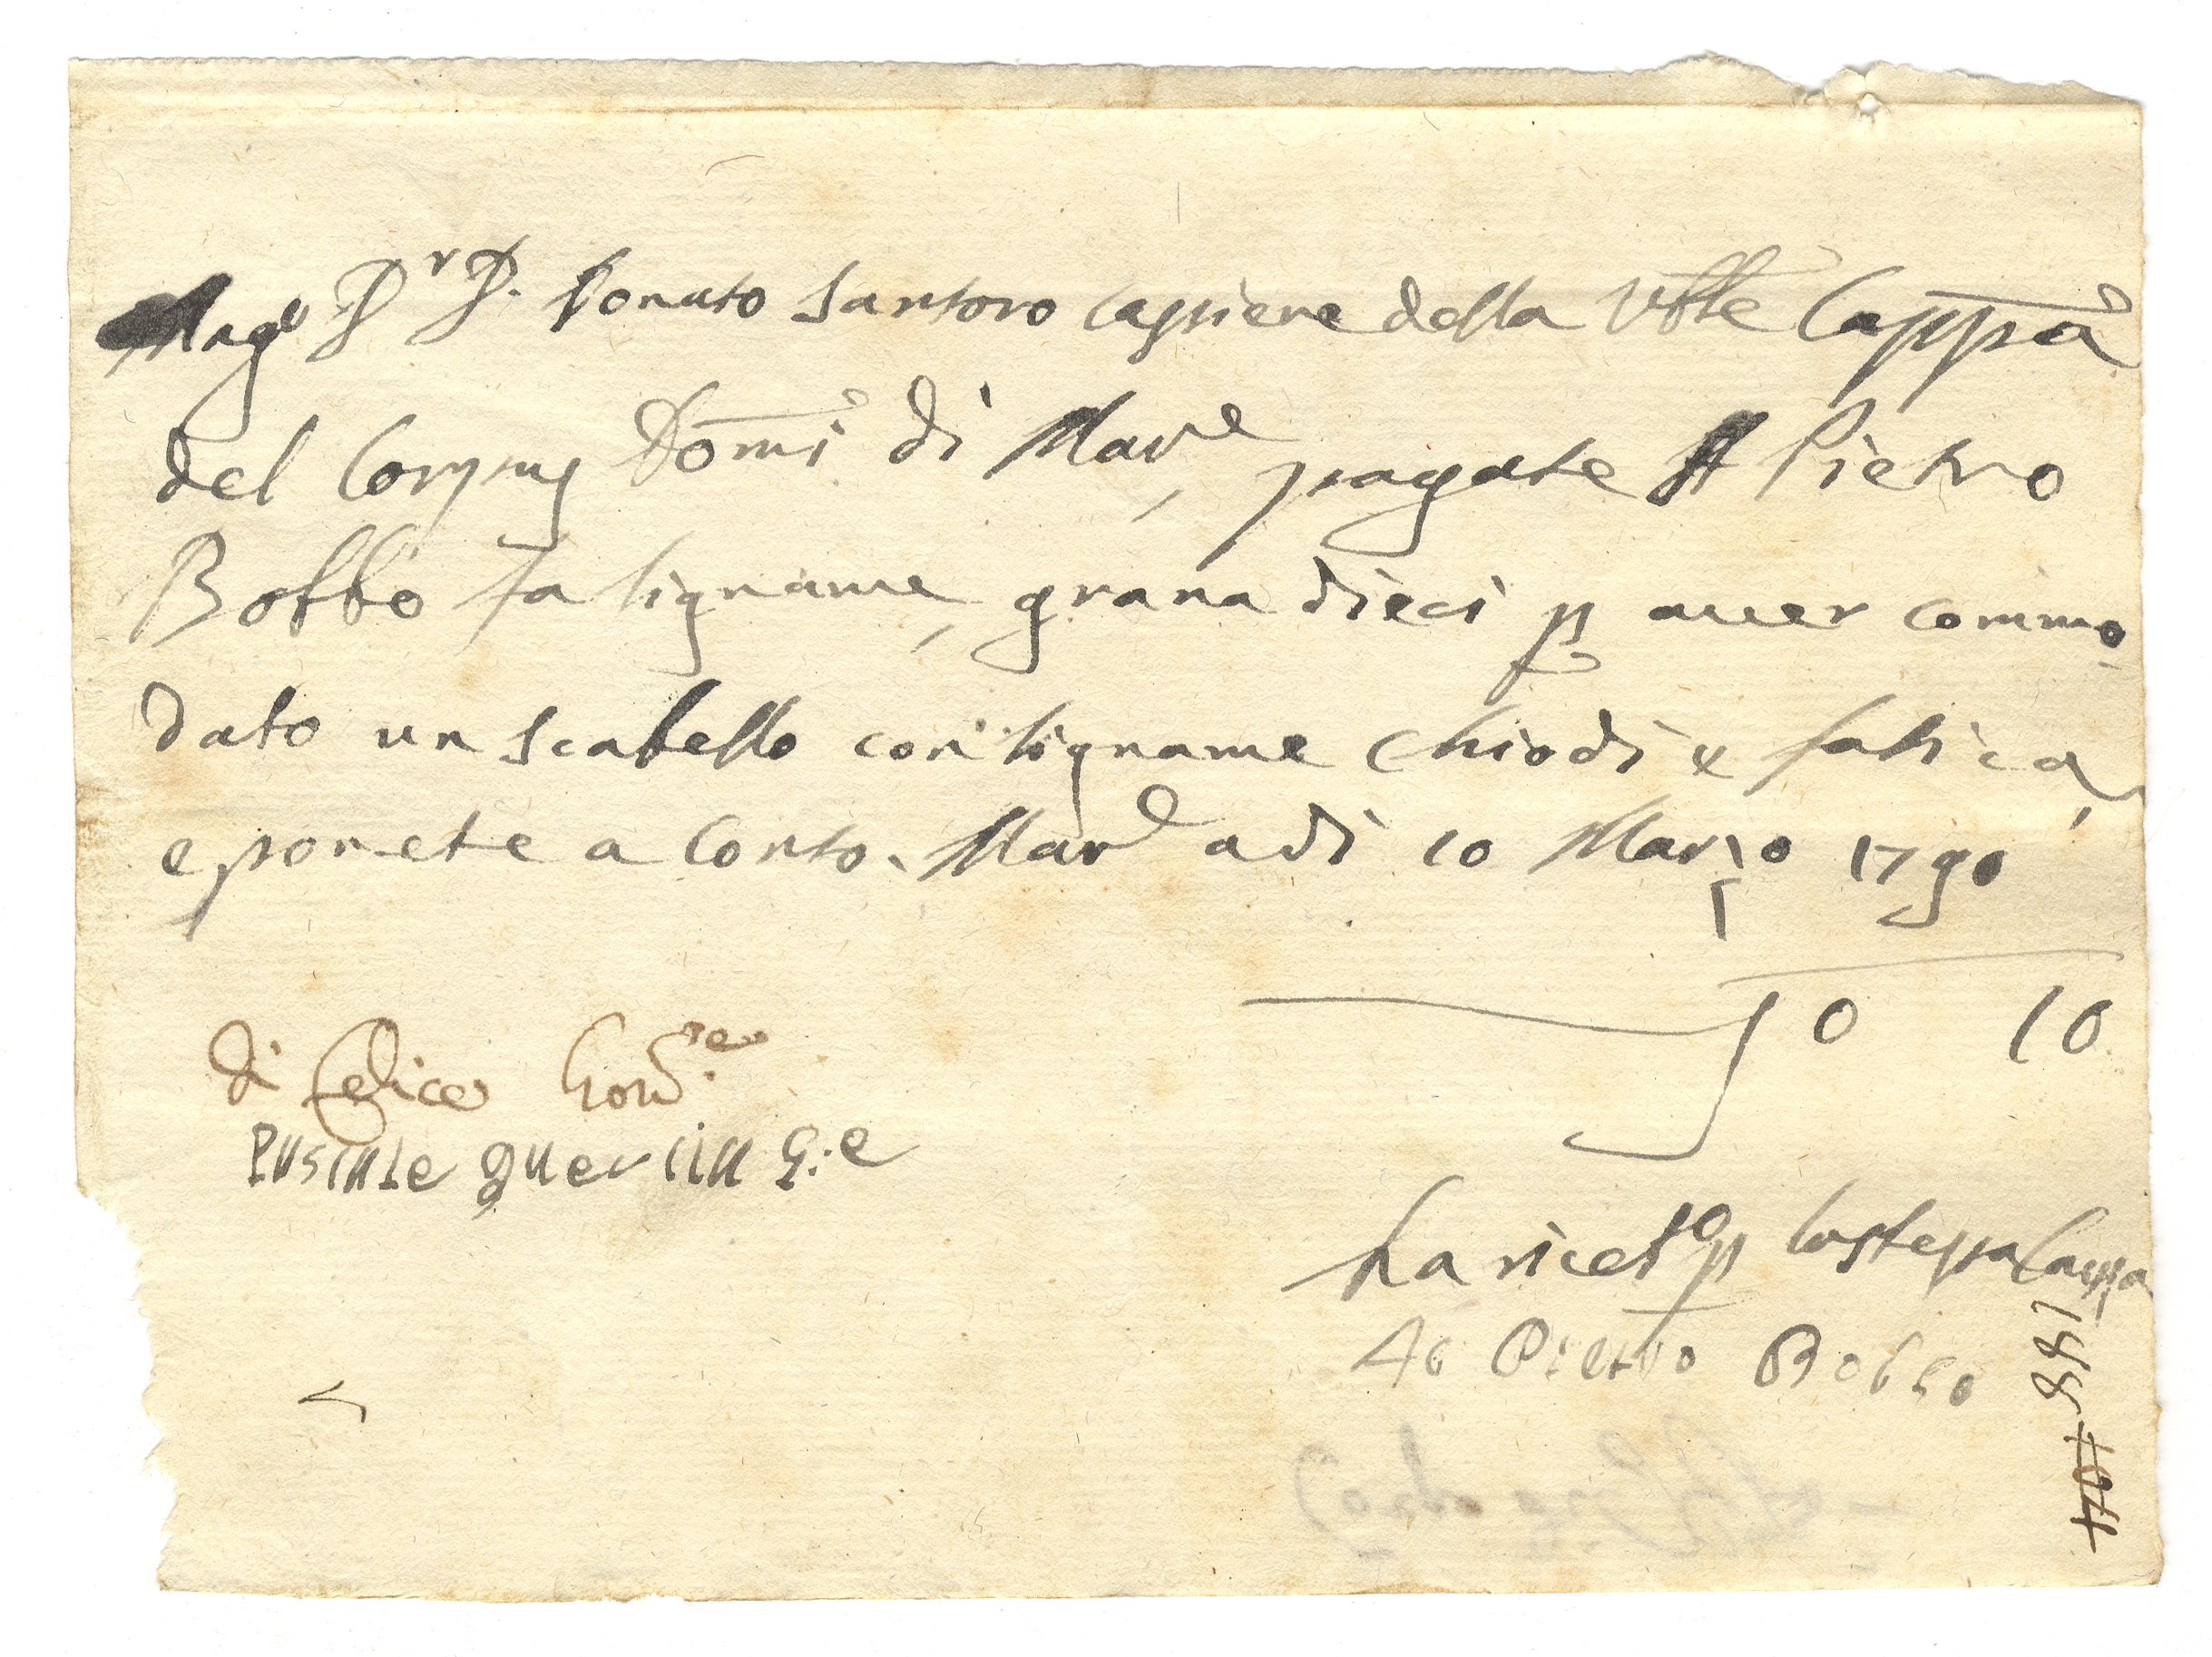 Mag.co Sr D. Donato Santoro Cassiere della Vble Cappa
del Corpus Domi di Mar.e, pagate A Pietro
Bobbo faligname, grana dieci p aver commo
dato un scabello con ligname chiodi e fatica,
e ponete a Conto. Mare adi 10 Marzo 1790
0 10
di Felice Gov.re
Pascale guercia G:e
La ricet.o p
Io Pietro Bobbo
1558